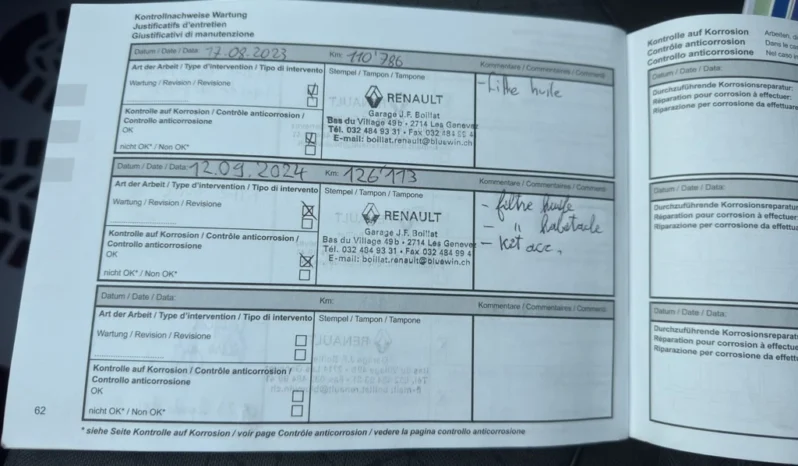 Kontrollnachweise Wartung
Justificatifs d'entretien
Giustificativi di manutenzione
Datum / Date / Data: 17.08.2023 Km: 110'786 Kommentare / Commentaires / Commenti
Art der Arbeit / Type d'intervention / Tipo di intervento Stempel / Tampon / Tampone
- filtre huile
Wartung / Revision / Revisione
RENAULT
Garage J.F. Boillat
Bas du Village 49b • 2714 Les Genevez
Tél. 032 484 93 31 • Fax 032 484 99 4
E-mail: boillat.renault@bluewin.ch
Kontrolle auf Korrosion / Contrôle anticorrosion /
Controllo anticorrosione
OK
nicht OK* / Non OK*
Datum / Date / Data: 12.09.2024 Km: 126'113 Kommentare / Commentaires / Commenti
Art der Arbeit / Type d'intervention / Tipo di intervento Stempel / Tampon / Tampone
- filtre huile
- " habitacle
- Ket acc.
Wartung / Revision / Revisione
RENAULT
Garage J.F. Boillat
Bas du Village 49b • 2714 Les Genevez
Tél. 032 484 93 31 • Fax 032 484 99 4
E-mail: boillat.renault@bluewin.ch
Kontrolle auf Korrosion / Contrôle anticorrosion /
Controllo anticorrosione
OK
nicht OK* / Non OK*
Datum / Date / Data: Km: Kommentare / Commentaires / Commenti
Art der Arbeit / Type d'intervention / Tipo di intervento Stempel / Tampon / Tampone
Wartung / Revision / Revisione
Kontrolle auf Korrosion / Contrôle anticorrosion /
Controllo anticorrosione
OK
nicht OK* / Non OK*
62
* siehe Seite Kontrolle auf Korrosion / voir page Contrôle anticorrosion / vedere la pagina controllo anticorrosione
Kontrolle auf Korrosion
Contrôle anticorrosion
Controllo anticorrosione
Arbeiten, d
Dans le co
Nel caso in
Datum / Date / Data:
Durchzuführende Korrosionsreparatur:
Réparation pour corrosion à effectuer:
Riparazione per corrosione da effettuare
Datum / Date / Data:
Durchzuführende Korrosionsreparatur
Réparation pour corrosion à effectuer
Riparazione per corrosione da effettuar
Datum / Date / Data:
Durchzuführende Korrosionsreparat
Réparation pour corrosion à effectue
Riparazione per corrosione da effettu